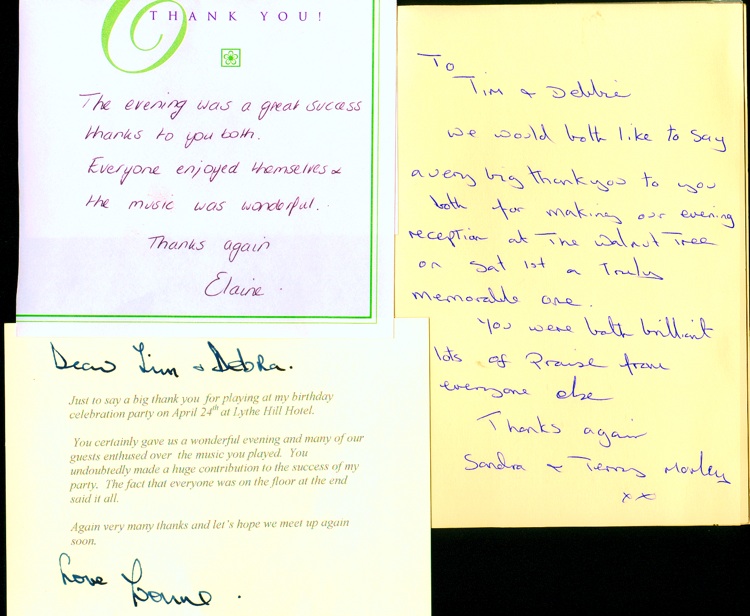 THANK YOU!
The evening was a great success
thanks to you both.
Everyone enjoyed themselves &
the music was wonderful.
Thanks again
Elaine.
To
Tim & Debbie
We would both like to say
a very big thankyou to you
both for making our evening
reception at The Walnut Tree
on Sat 1st a Truly
memorable one.
You were both brilliant
lots of Praise from
everyone else
Thanks again
Sandra & Terry Morley
xx
Dear Tim & Debra.
Just to say a big thank you for playing at my birthday
celebration party on April 24th at Lythe Hill Hotel.
You certainly gave us a wonderful evening and many of our
guests enthused over the music you played. You
undoubtedly made a huge contribution to the success of my
party. The fact that everyone was on the floor at the end
said it all.
Again very many thanks and let's hope we meet up again
soon.
Love